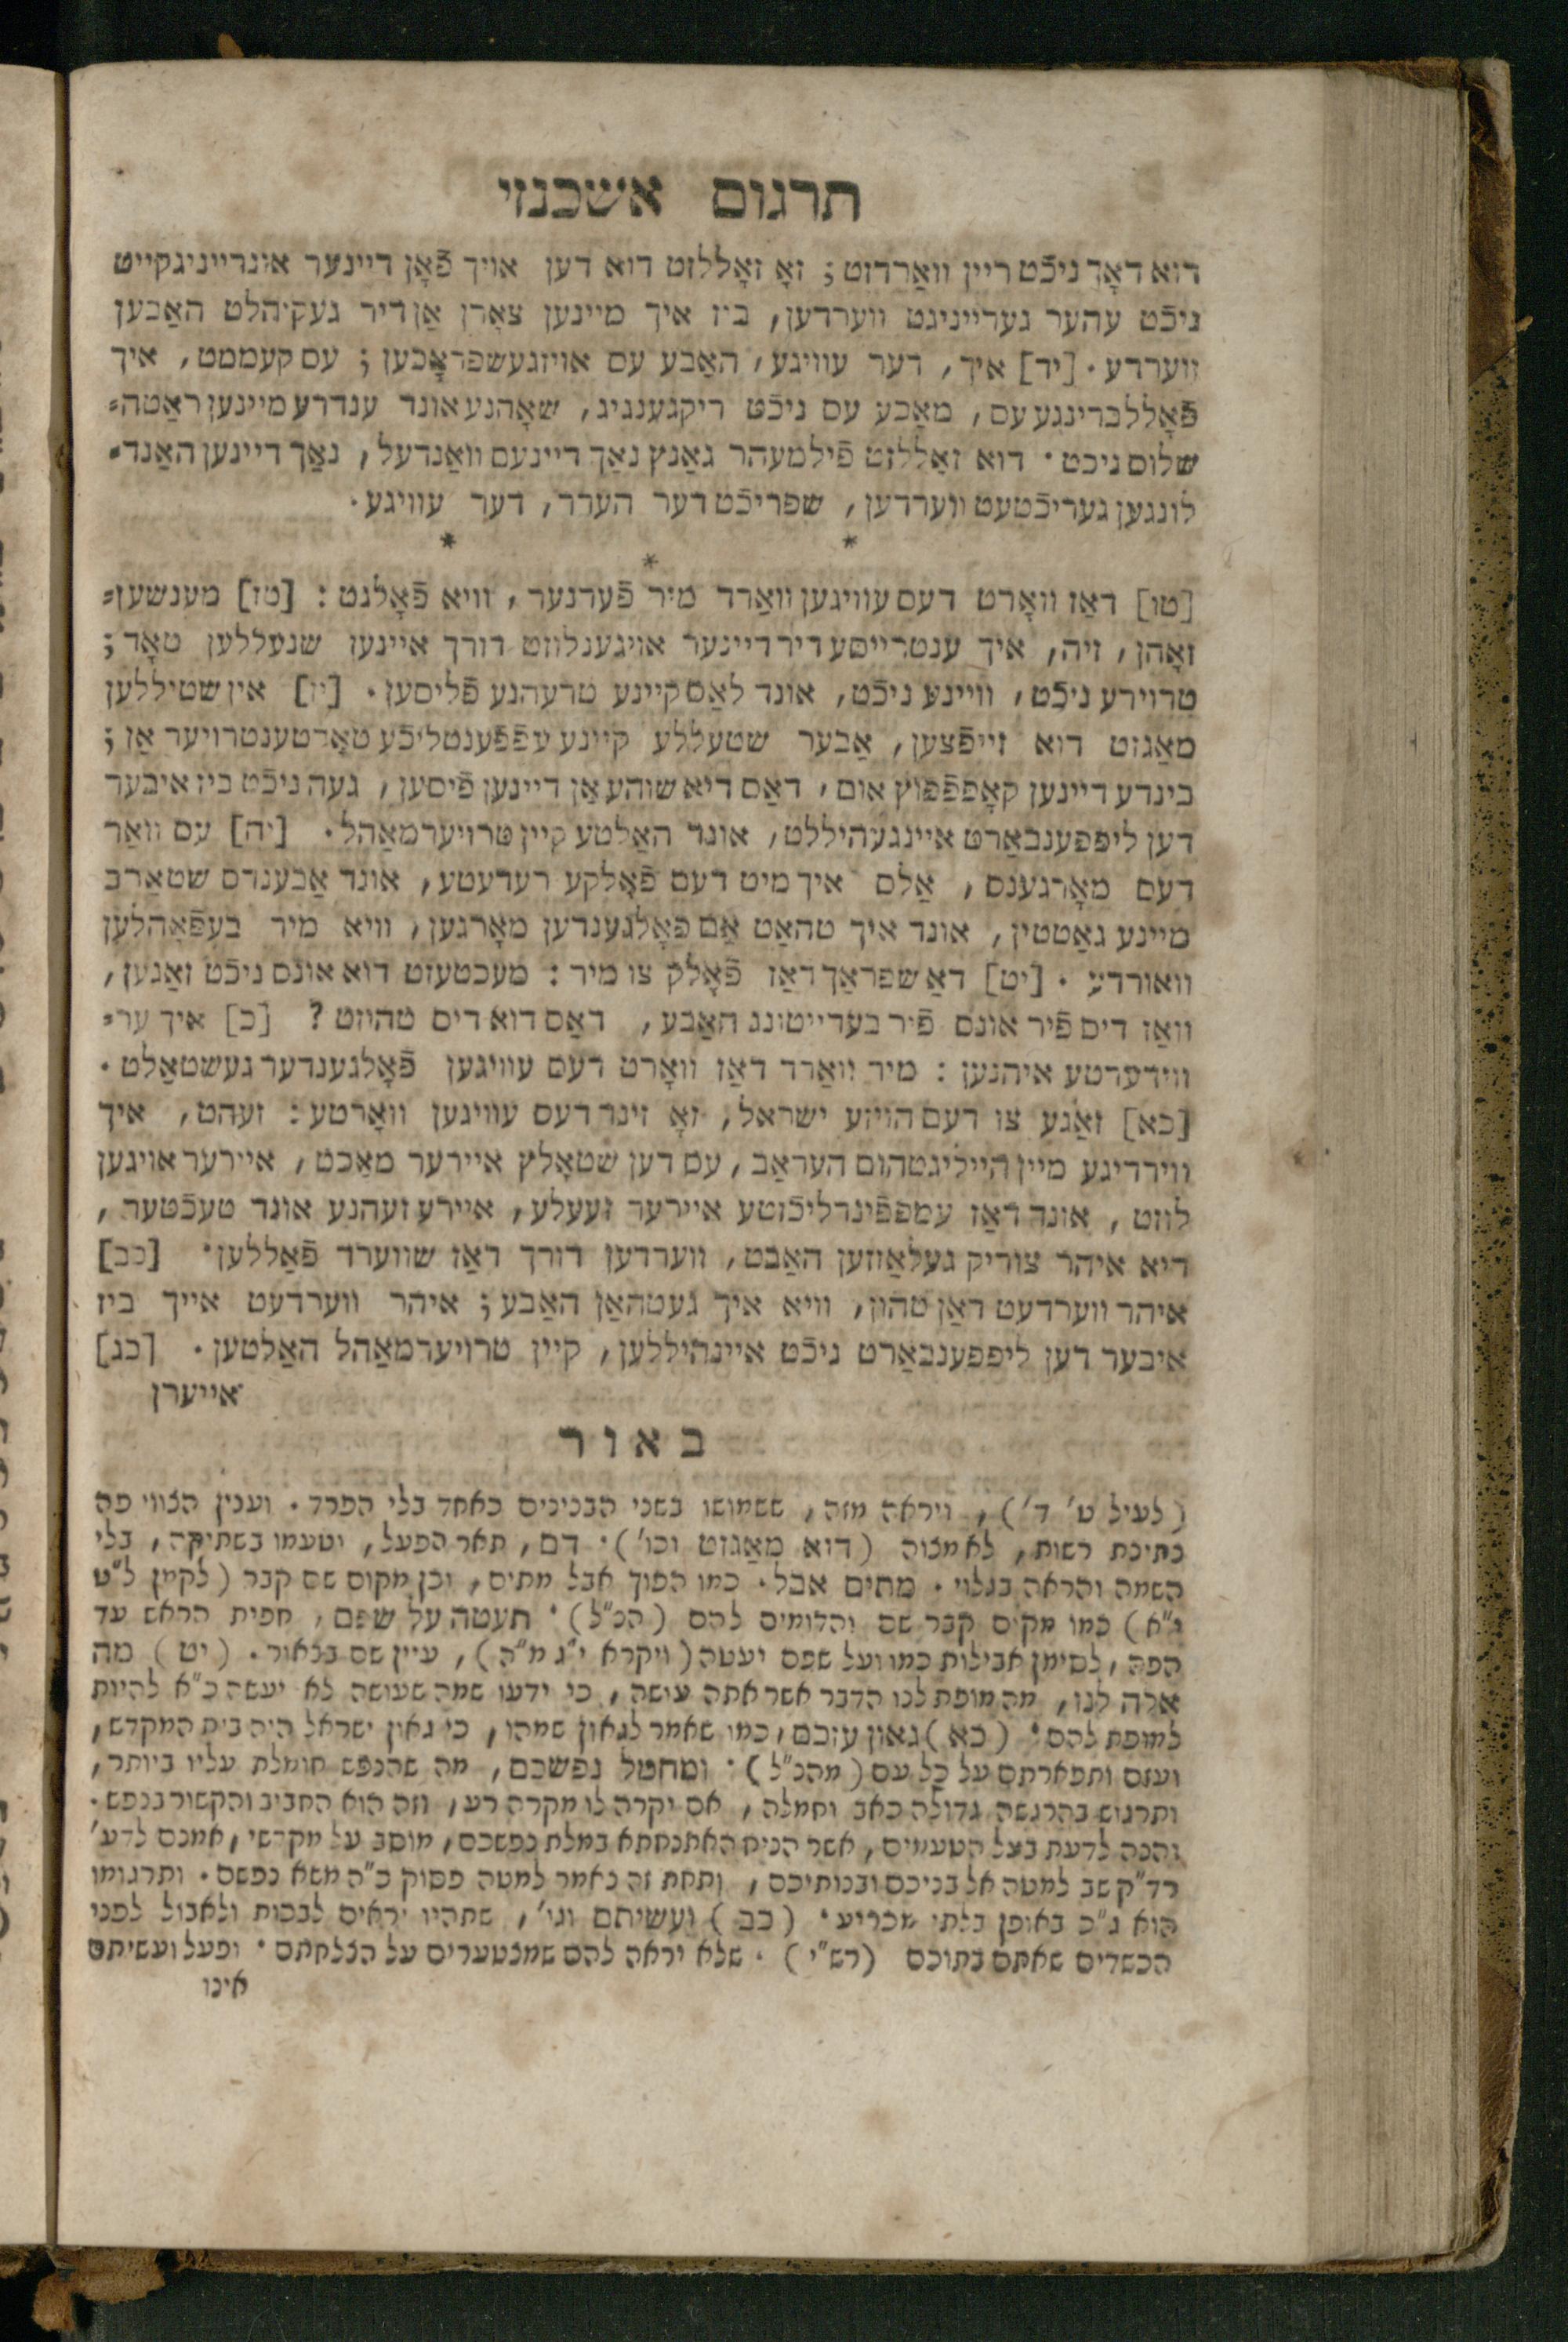 תרגום אשכנזי
דוא דאָך ניכֿט ריין וואַרדזט; זאָ זאָללזט דוא דען אויך פֿאָן דיינער אונרייניגקייט
ניכֿט עהער גערייניגט ווערדען, ביז איך מיינען צאָרן אַן דיר געקיהלט האַבען
ווערדע. [יד] איך, דער עוויגע, האַבע עס אויזגעשפראָכען; עס קעממט, איך
פֿאָללברינגע עס, מאַכע עס ניכֿט ריקגענגיג, שאָהנע אונד ענדרע מיינען ראַטה=
שלוס ניכט. דוא זאָללזט פֿילמעהר גאַנץ נאַך דיינעם וואַנדעל, נאַך דיינען האַנד=
לונגען געריכֿטעט ווערדען, שפריכֿט דער הערר, דער עוויגע.
* * *
[טו] דאַז וואָרט דעס עוויגען וואַרד מיר פֿערנער, וויא פֿאָלגט: [טז] מענשען=
זאָהן, זיה, איך ענטרייסע דיר דיינער אויגענלוזט דורך איינען שנעללען טאָד;
טרוירע ניכֿט, וויינע ניכֿט, אונד לאַס קיינע טרעהנע פֿליסען. [יז] אין שטיללען
מאַגזט דוא זייפֿצען, אַבער שטעללע קיינע עפֿפֿענטליכֿע טאָדטענטרויער אַן;
בינדע דיינען קאָפפֿפּוץ אום, דאַס דיא שוהע אַן דיינען פֿיסען, געה ניכֿט ביז איבער
דען ליפפענבאַרט איינגעהיללט, אונד האַלטע קיין טרויערמאַהל. [יח] עס וואַר
דעס מאָרגענס, אַלס איך מיט דעם פֿאָלקע רעדעטע, אונד אַבענדס שטאַרב
מיינע גאַטטין, אונד איך טהאַט אַם פֿאָלגענדען מאָרגען, וויא מיר בעפֿאָהלען
וואורדע. [יט] דאַ שפראַך דאַז פֿאָלק צו מיר: מעכטעזט דוא אונס ניכֿט זאַגען,
וואַז דיס פֿיר אונס פֿיר בעדייטונג האַבע, דאַס דוא דיס טהוזט? [כ] איך ער=
ווידערטע איהנען: מיר וואַרד דאַז וואָרט דעס עוויגען פֿאָלגענדער געשטאַלט.
[כא] זאַגע צו דעם הויזע ישראל, זאָ זינד דעס עוויגען וואָרטע: זעהט, איך
ווירדיגע מיין הייליגטהום העראַב, עס דען שטאָלץ אייערער מאַכט, אייערער אויגען
לוזט, אונד דאַז עמפפֿינדליכֿזטע אייערער זעעלע, אייערע זעהנע אונד טעכֿטער,
דיא איהר צוריק געלאַזזען האַבט, ווערדען דורך דאַז שווערד פֿאַללען. [כב]
איהר ווערדעט דאַן טהון, וויא איך געטהאַן האַבע; איהר ווערדעט אייך ביז
איבער דען ליפפענבאַרט ניכֿט איינהיללען, קיין טרויערמאַהל האַלטען. [כג]
אייערן
באור
(לעיל ט' ד'), ויראה מזה, ששמושו בשני הבנינים כאחד בלי הפרד. וענין הצווי פה
כתינת רשות, לא מצוה (דוא מאַגזט וכו'). דם, תאר הפעל, וטעמו בשתיקה, בלי
השמה והראה בגלוי. מתים אבל. כמו הפוך אבל מתים, וכן מקום שם קבר (לקמן ל"ט
י"א) כמו מקום קבר שם והדומים להם (הכ"ל). תעטה על שפם, חפית הראש עד
הפה, לסימן אבילות כמו ועל שפם יעטה (ויקרא י"ג מ"ה), עיין שם בבאור. (יט) מה
אלה לנו, מה מופת לנו הדבר אשר אתה עושה, כי ידעו שמה שעושה לא יעשה כ"א להיות
למופת להם. (כא) גאון עזכם, כמו שאמר לגאון שמהו, כי גאון ישראל היה בית המקדש,
ועזם ותפארתם על כל עם (מהכ"ל). ומחמל נפשכם, מה שהנפש חומלת עליו ביותר,
ותרגוש בהרגשה גדולה כאב וחמלה, אם יקרה לו מקרה רע, וזה הוא החביב והקשור בנפש.
והנה לדעת בעל הטעמים, אשר הניח האתנחתא במלת נפשכם, מוסב על מקדשי, אמנם לדע'
רד"ק שב למטה אל בניכם ובנותיכם, ותחת זה נאמר למטה פסוק כ"ה משא נפשם. ותרגומו
הוא ג"כ באופן בלתי מכריע. (כב) ועשיתם וגו', שתהיו יראים לבכות ולאבול לפני
הכשדים שאתם בתוכם (רש"י). שלא יראה להם שמצטערים על הצלחתם. ופעל ועשיתם
אינו